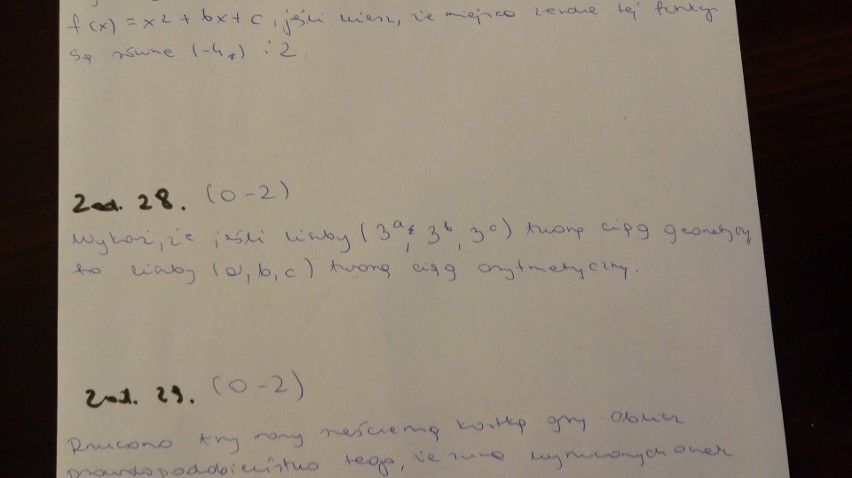 f(x) = x2 + bx + c, jeśli wiesz, że miejsca zerowe tej funkcji
są równe (-4) i 2.
Zad. 28. (0-2)
Wykaż, że jeśli liczby (3ᵃ, 3ᵇ, 3ᶜ) tworzą ciąg geometryczny
to liczby (a, b, c) tworzą ciąg arytmetyczny.
Zad. 29. (0-2)
Rzucono trzy razy sześcienną kostką gry Oblicz
prawdopodobieństwo tego, że suma wyrzuconych oczek